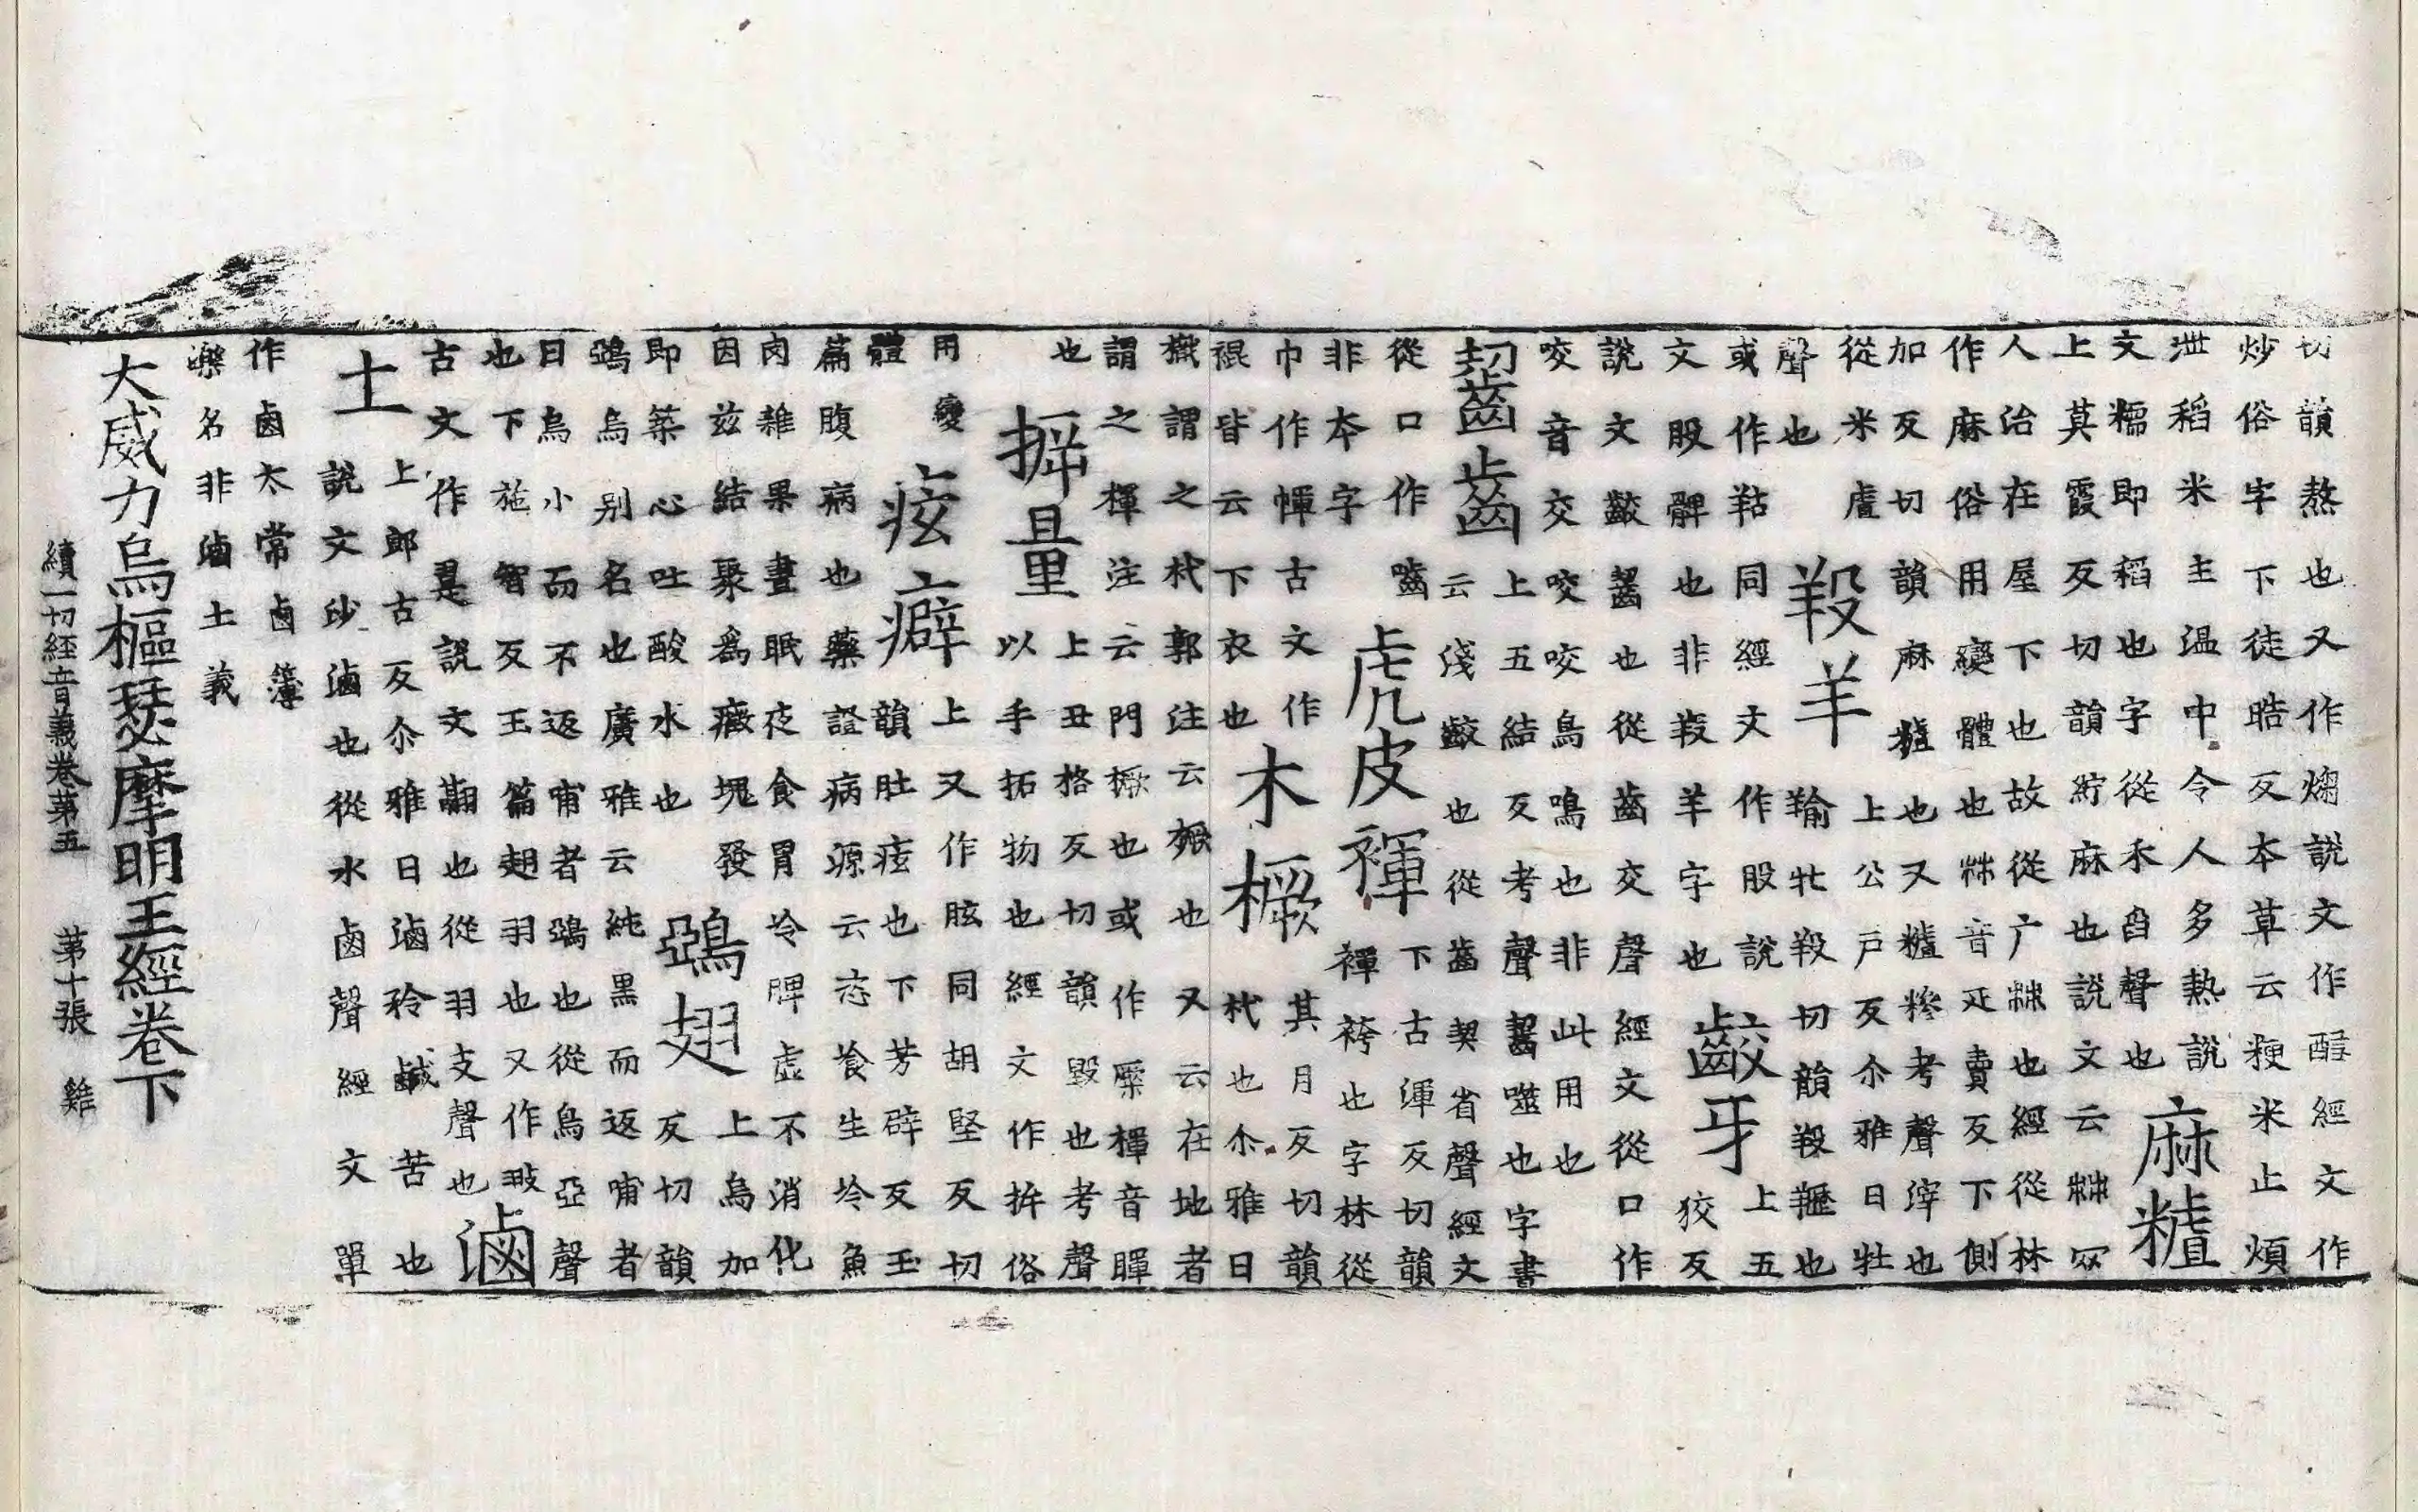 切韻熬也又作㶽說文作𨢄經文作
炒俗字下徒晧反本草云粳米止煩
泄稻米主温中令人多熱說
文糯即稻也字從禾舀聲也
麻𥻦
上莫霞反切韻紵麻也說文云𣏟
人治在屋下也故從广𣏟也經從林
作麻俗用變體也𣏟音疋賣反下側
加反切韻麻𥻦也又𥻦糝考聲滓也
從米虘
聲也
羖羊
上公戶反尒雅曰牡
羭牡羖切韻羖䍽也
或作羖同經文作股說
文股髀也非羖羊字也
齩牙
上五
狡反
說文齩齧也從齒交聲經文從口作
咬音交咬咬鳥鳴也非此用也
齧齒
上五結反考聲齧噬也字書
云淺齩也從齒契省聲經文
從口作嚙
非本字
虎皮褌
下古渾反切韻
褌袴也字林從
巾作㡓古文作
裩皆云下衣也
木橛
其月反切韻
杙也尒雅曰
橛謂之杙郭注云橛也又云在地者
謂之楎注云門橛也或作橜楎音暉
也
㧸量
上丑格反切韻毀也考聲
以手拓物也經文作拚俗
用變
體
痃癖
上又作胘同胡堅反切
韻肚痃也下芳辟反玉
篇腹病也藥證病源云恣飡生冷魚
肉雜果晝眠夜食胃冷脾虛不消化
因茲結聚為癥塊發
即築心吐酸水也
鵶翅
上烏加
反切韻
鵶烏別名也廣雅云純黑而返哺者
曰烏小而不返哺者鵶也從鳥亞聲
也下施智反玉篇翅羽也又作翄
古文作翨說文翮也從羽支聲也
滷
土
上郎古反尒雅曰滷矜鹹苦也
說文沙滷也從水鹵聲經文單
作鹵太常鹵簿
樂名非滷土義
大威力烏樞瑟摩明王經卷下
續一切經音義卷第五 第十張 雞